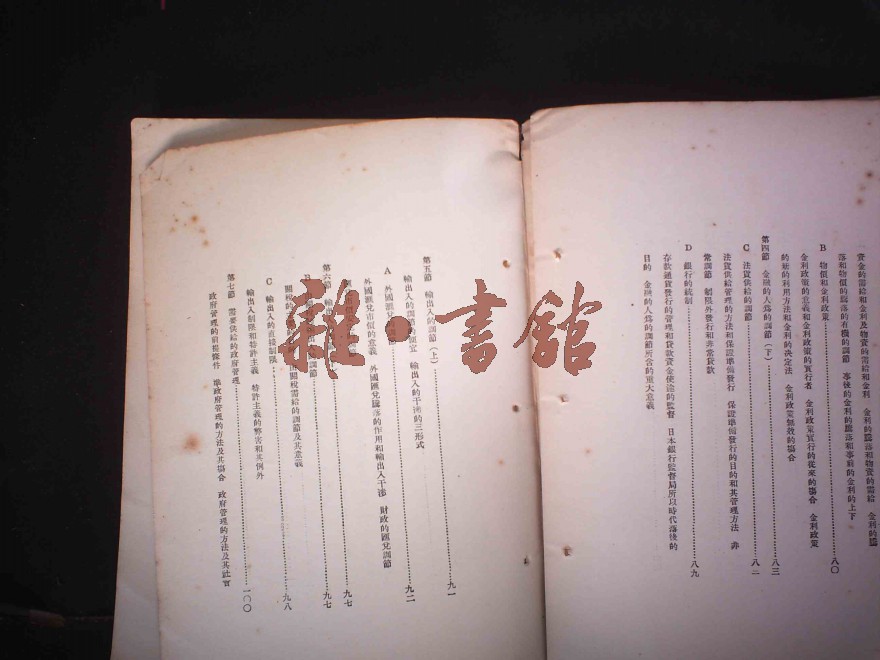 資金的需給和金利 金利及物資的需給 金利的騰
落和物價的騰落的有機的調節 事後的金利的騰落和事前的金利的上下
B 物價和金利政策 八〇
金利政策的意義和金利政策的實行者 金利政策實行的從來的場合 金利政策
的新的利用方法和金利的決定法 金利政策無效的場合
第四節 金融的人爲的調節(下) 八三
C 法貨供給的調節 八二
法貨供給管理的方法和保證準備發行 保證準備發行的目的和其管理方法 非
常調節 制限外發行和非常貸款
D 銀行的統制 八九
存款通貨發行的管理和貸款資金使途的監督 日本銀行監督局所以時代落後的
目的 金融的人爲的調節所含的重大意義
第五節 輸出入的調節(上) 九一
輸出入的調節的 輸出入的干涉的三形式
A 外國匯兌 九二
外國匯兌市價的意義 外國匯兌騰落的作用和輸出入干涉 財政的匯兌調節
九七
第六節 輸出 九七
調節
關稅的 關稅需給的調節及其意義
C 輸出入的直接制限 九八
輸出入制限和特許主義 特許主義的弊害和其例外
第七節 需要供給的政府管理 一〇〇
政府管理的前提條件 準政府管理的方法及其場合 政府管理的方法及其社會
雜·書館